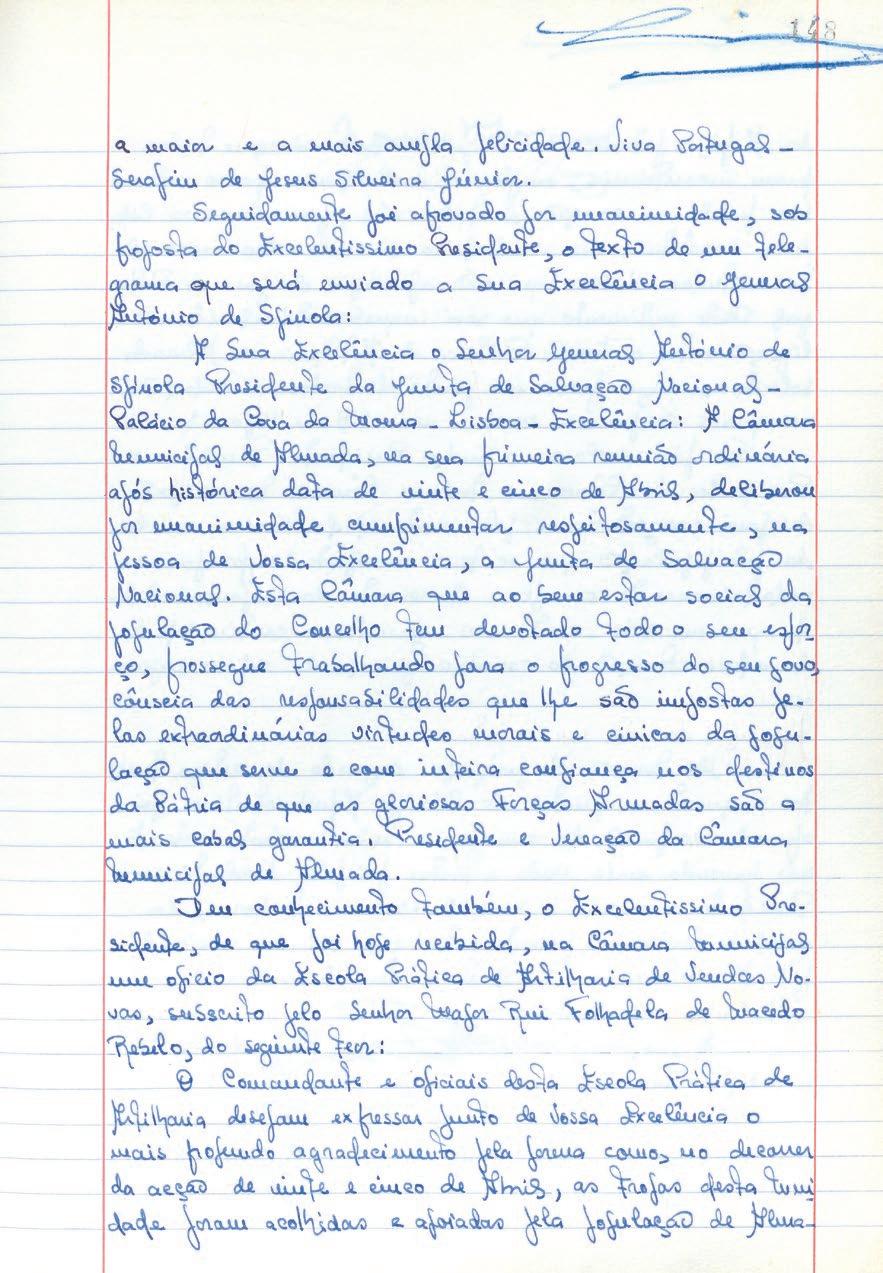 148
a maior e a mais ampla felicidade. Viva Portugal -
Serafim de Jesus Silveira Júnior.
Seguidamente foi aprovado por unanimidade, sob
proposta do Excelentissimo Presidente, o texto de um tele-
grama que será enviado a Sua Excelência o General
António de Spinola:
A Sua Excelência o Senhor General António de
Spinola Presidente da Junta de Salvação Nacional -
Palácio da Cova da Moura - Lisboa - Excelência: A Câmara
Municipal de Almada, na sua primeira reunião ordinária
após histórica data de vinte e cinco de Abril, deliberou
por unanimidade cumprimentar respeitosamente, na
pessoa de Vossa Excelência, a Junta de Salvação
Nacional. Esta Câmara que ao bem estar social da
população do Concelho tem devotado todo o seu esfor-
ço, prossegue trabalhando para o progresso do seu povo,
cônscia das responsabilidades que lhe são impostas pe-
las extraordinárias virtudes morais e civicas da popu-
lação que serve e com inteira confiança nos destinos
da Pátria de que as gloriosas Forças Armadas são a
mais cabal garantia. Presidente e Vereação da Câmara
Municipal de Almada.
Deu conhecimento também, o Excelentissimo Pre-
sidente, de que foi hoje recebida, na Câmara Municipal
um oficio da Escola Prática de Artilharia de Vendas No-
vas, subscrito pelo Senhor Major Rui Folhadela de Macedo
Rebelo, do seguinte teor:
O Comandante e oficiais desta Escola Prática de
Artilharia desejam expressar junto de Vossa Excelência o
mais profundo agradecimento pela forma como, no decorrer
da acção de vinte e cinco de Abril, as tropas desta Uni
dade foram acolhidas e apoiadas pela população de Alma-